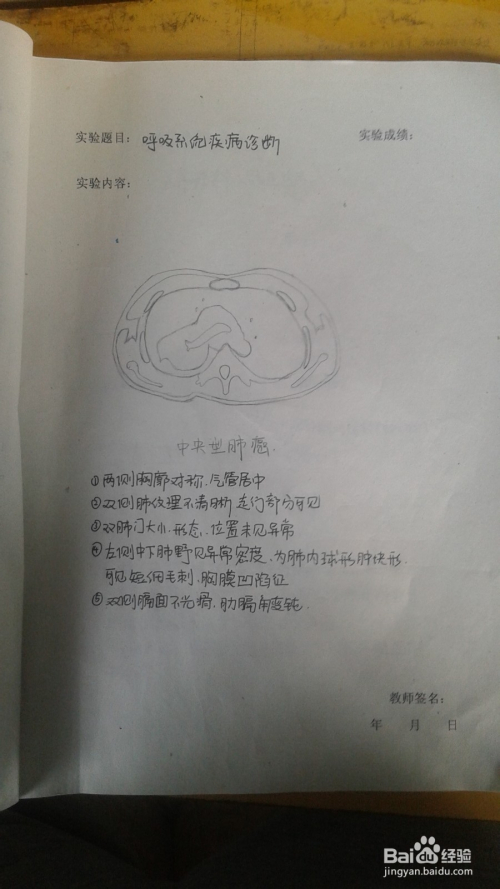 实验题目：呼吸系统疾病诊断
实验成绩：
实验内容：
中央型肺癌.
①两侧胸廓对称.气管居中
②双侧肺纹理不清晰 走行部分可见
③双肺门大小.形态.位置未见异常
④左侧中下肺野见异常密度.为肺内球形肿块形.
可见短细毛刺.胸膜凹陷征
⑤双侧膈面不光滑.肋膈角变钝.
教师签名：
年 月 日
Baidu 经验
jingyan.baidu.com